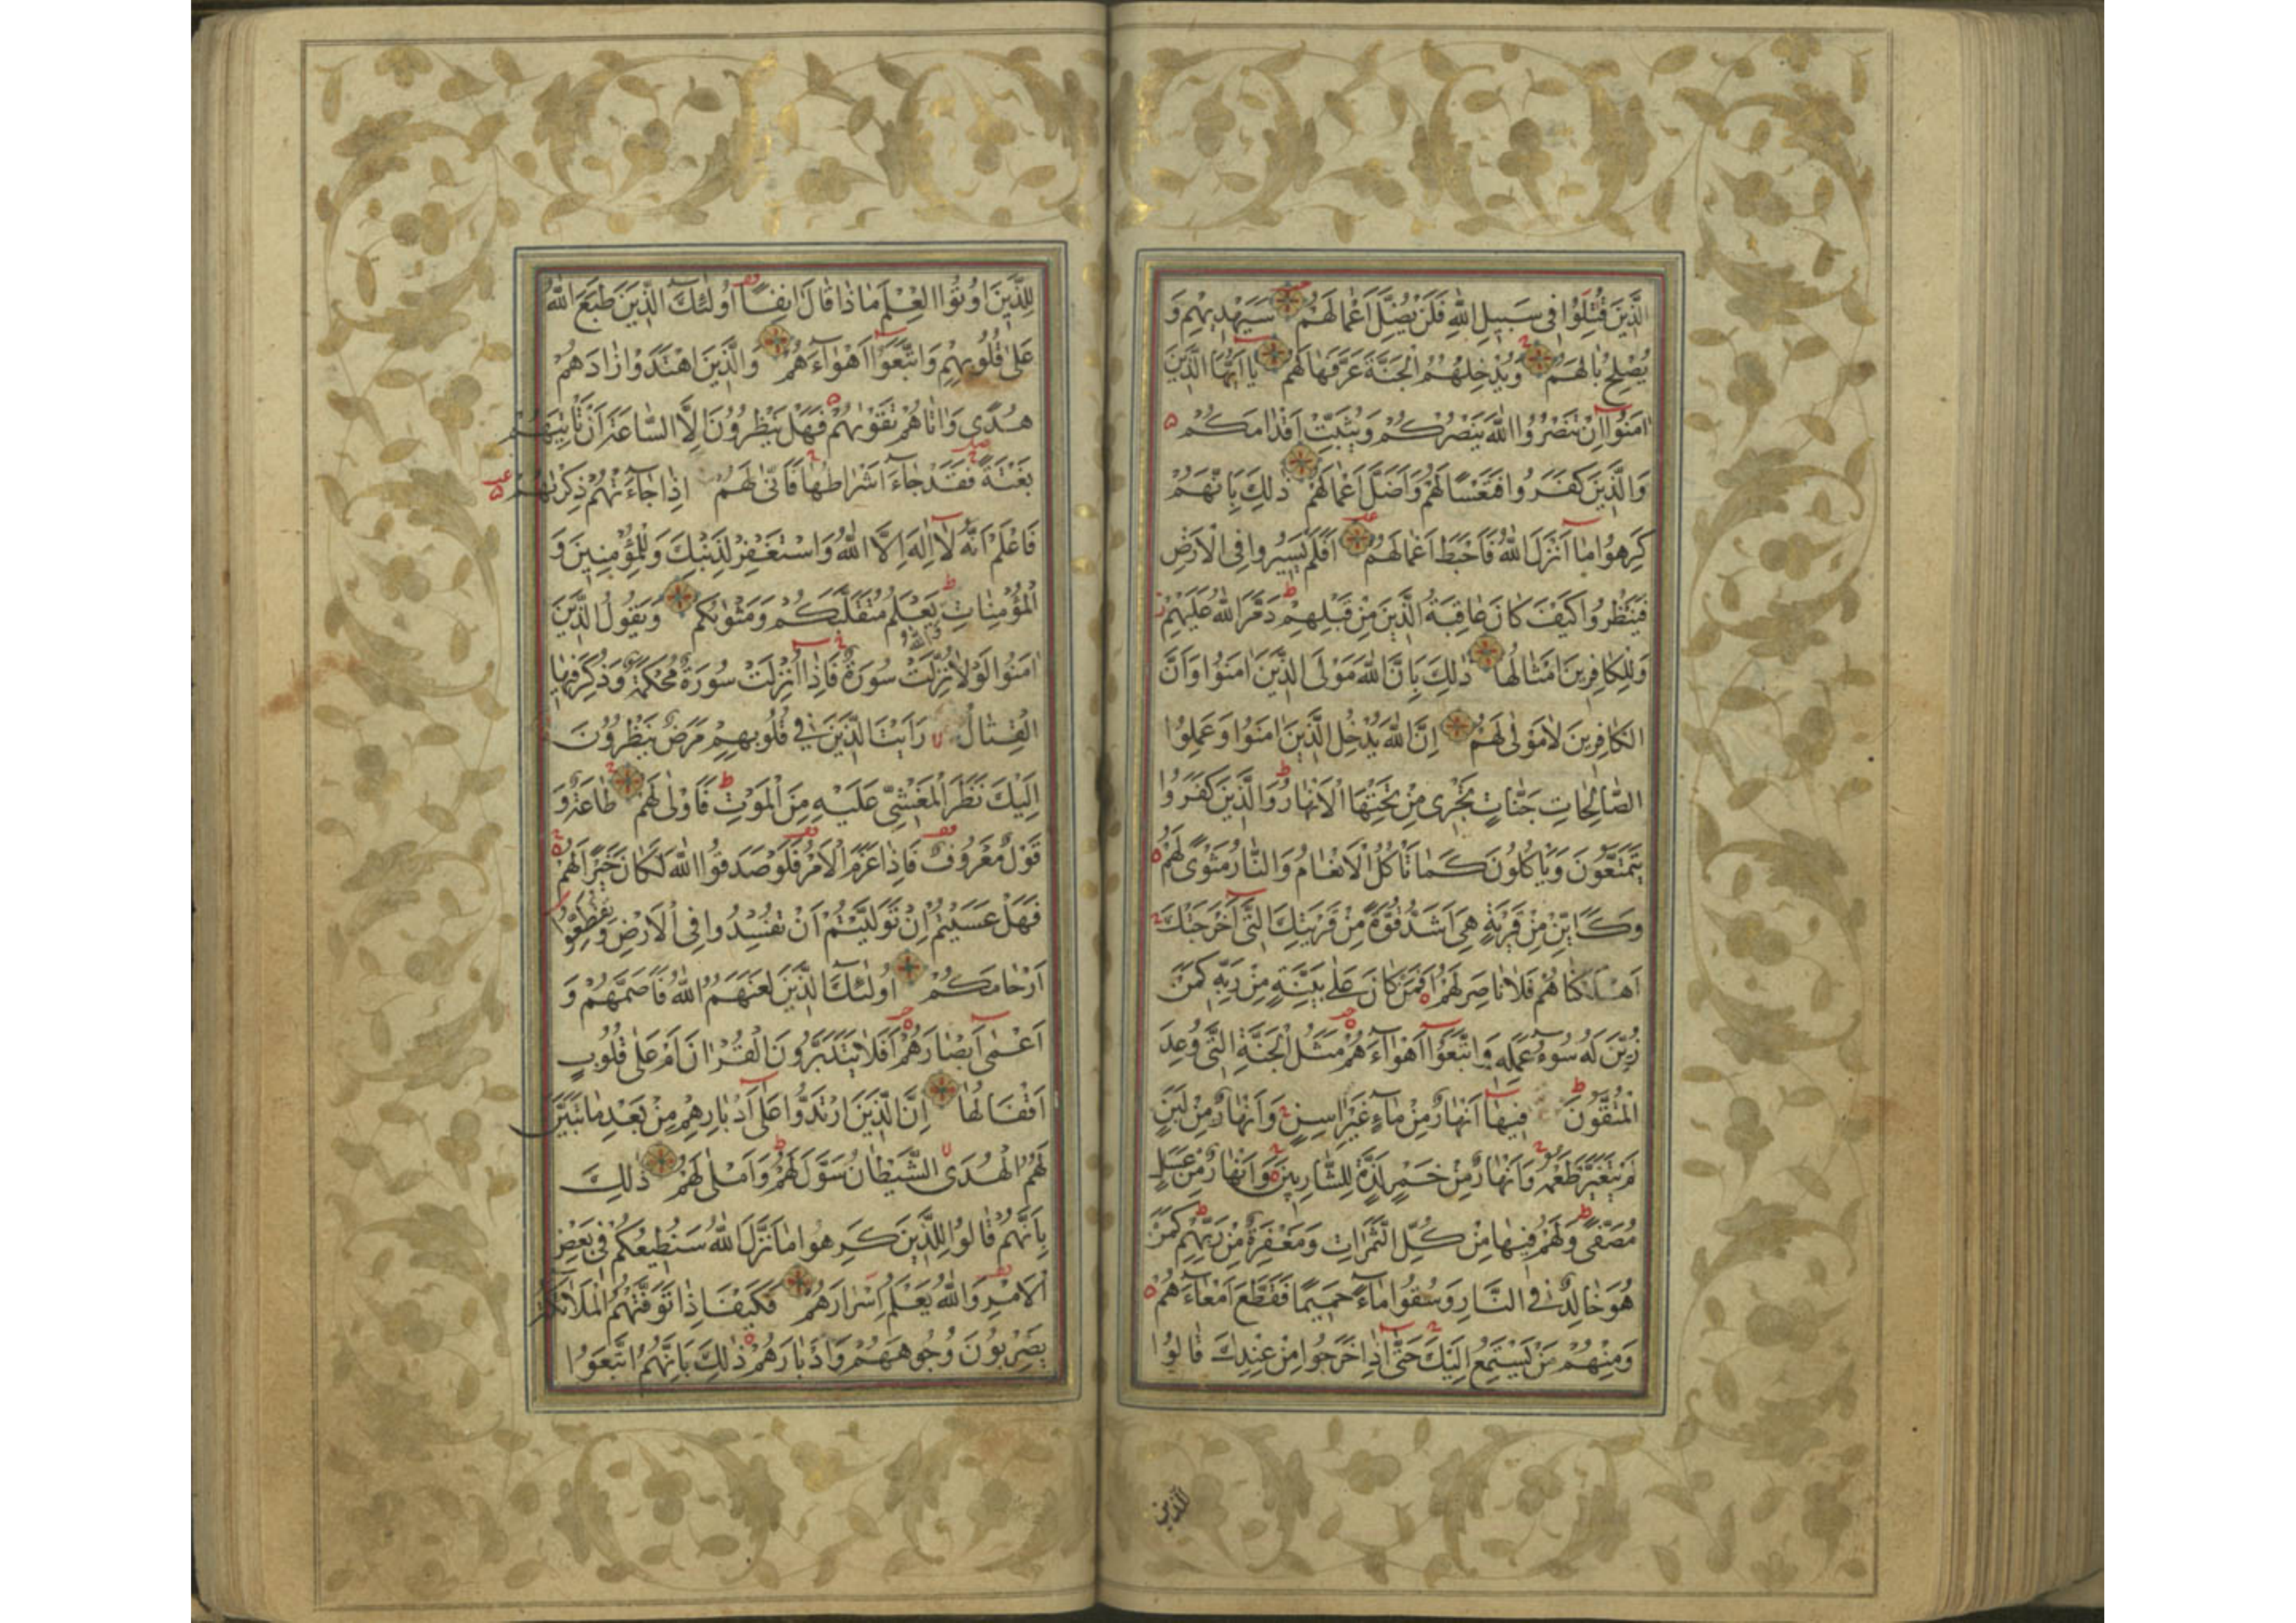 الَّذِينَ قُتِلُوا فِي سَبِيلِ اللّٰهِ فَلَنْ يُضِلَّ أَعْمَالَهُمْ سَيَهْدِيهِمْ وَ
يُصْلِحُ بَالَهُمْ وَيُدْخِلُهُمُ الْجَنَّةَ عَرَّفَهَا لَهُمْ يَا أَيُّهَا الَّذِينَ
اٰمَنُوا إِنْ تَنْصُرُوا اللّٰهَ يَنْصُرْكُمْ وَيُثَبِّتْ أَقْدَامَكُمْ
وَالَّذِينَ كَفَرُوا فَتَعْسًا لَهُمْ وَأَضَلَّ أَعْمَالَهُمْ ذٰلِكَ بِأَنَّهُمْ
كَرِهُوا مَا أَنْزَلَ اللّٰهُ فَأَحْبَطَ أَعْمَالَهُمْ أَفَلَمْ يَسِيرُوا فِي الْأَرْضِ
فَيَنْظُرُوا كَيْفَ كَانَ عَاقِبَةُ الَّذِينَ مِنْ قَبْلِهِمْ دَمَّرَ اللّٰهُ عَلَيْهِمْ
وَلِلْكَافِرِينَ أَمْثَالُهَا ذٰلِكَ بِأَنَّ اللّٰهَ مَوْلَى الَّذِينَ اٰمَنُوا وَأَنَّ
الْكَافِرِينَ لَا مَوْلٰى لَهُمْ إِنَّ اللّٰهَ يُدْخِلُ الَّذِينَ اٰمَنُوا وَعَمِلُوا
الصَّالِحَاتِ جَنَّاتٍ تَجْرِي مِنْ تَحْتِهَا الْأَنْهَارُ وَالَّذِينَ كَفَرُوا
يَتَمَتَّعُونَ وَيَأْكُلُونَ كَمَا تَأْكُلُ الْأَنْعَامُ وَالنَّارُ مَثْوًى لَهُمْ
وَكَأَيِّنْ مِنْ قَرْيَةٍ هِيَ أَشَدُّ قُوَّةً مِنْ قَرْيَتِكَ الَّتِي أَخْرَجَتْكَ
أَهْلَكْنَاهُمْ فَلَا نَاصِرَ لَهُمْ أَفَمَنْ كَانَ عَلَى بَيِّنَةٍ مِنْ رَبِّهِ كَمَنْ
زُيِّنَ لَهُ سُوءُ عَمَلِهِ وَاتَّبَعُوا أَهْوَاءَهُمْ مَثَلُ الْجَنَّةِ الَّتِي وُعِدَ
الْمُتَّقُونَ فِيهَا أَنْهَارٌ مِنْ مَاءٍ غَيْرِ اٰسِنٍ وَأَنْهَارٌ مِنْ لَبَنٍ
لَمْ يَتَغَيَّرْ طَعْمُهُ وَأَنْهَارٌ مِنْ خَمْرٍ لَذَّةٍ لِلشَّارِبِينَ وَأَنْهَارٌ مِنْ عَسَلٍ
مُصَفًّى وَلَهُمْ فِيهَا مِنْ كُلِّ الثَّمَرَاتِ وَمَغْفِرَةٌ مِنْ رَبِّهِمْ كَمَنْ
هُوَ خَالِدٌ فِي النَّارِ وَسُقُوا مَاءً حَمِيمًا فَقَطَّعَ أَمْعَاءَهُمْ
وَمِنْهُمْ مَنْ يَسْتَمِعُ إِلَيْكَ حَتَّى إِذَا خَرَجُوا مِنْ عِنْدِكَ قَالُوا
للذين
لِلَّذِينَ أُوتُوا الْعِلْمَ مَاذَا قَالَ اٰنِفًا أُولٰئِكَ الَّذِينَ طَبَعَ اللّٰهُ
عَلَى قُلُوبِهِمْ وَاتَّبَعُوا أَهْوَاءَهُمْ وَالَّذِينَ اهْتَدَوْا زَادَهُمْ
هُدًى وَاٰتَاهُمْ تَقْوٰيهُمْ فَهَلْ يَنْظُرُونَ إِلَّا السَّاعَةَ أَنْ تَأْتِيَهُمْ
بَغْتَةً فَقَدْ جَاءَ أَشْرَاطُهَا فَأَنَّى لَهُمْ إِذَا جَاءَتْهُمْ ذِكْرٰيهُمْ
فَاعْلَمْ أَنَّهُ لَا إِلٰهَ إِلَّا اللّٰهُ وَاسْتَغْفِرْ لِذَنْبِكَ وَلِلْمُؤْمِنِينَ وَ
الْمُؤْمِنَاتِ يَعْلَمُ مُتَقَلَّبَكُمْ وَمَثْوٰيكُمْ وَيَقُولُ الَّذِينَ
وَاللّٰهُ
اٰمَنُوا لَوْلَا نُزِّلَتْ سُورَةٌ فَإِذَا أُنْزِلَتْ سُورَةٌ مُحْكَمَةٌ وَذُكِرَ فِيهَا
الْقِتَالُ رَأَيْتَ الَّذِينَ فِي قُلُوبِهِمْ مَرَضٌ يَنْظُرُونَ
إِلَيْكَ نَظَرَ الْمَغْشِيِّ عَلَيْهِ مِنَ الْمَوْتِ فَأَوْلٰى لَهُمْ طَاعَةٌ وَ
قَوْلٌ مَعْرُوفٌ فَإِذَا عَزَمَ الْأَمْرُ فَلَوْ صَدَقُوا اللّٰهَ لَكَانَ خَيْرًا لَهُمْ
فَهَلْ عَسَيْتُمْ إِنْ تَوَلَّيْتُمْ أَنْ تُفْسِدُوا فِي الْأَرْضِ وَتُقَطِّعُوا
أَرْحَامَكُمْ أُولٰئِكَ الَّذِينَ لَعَنَهُمُ اللّٰهُ فَأَصَمَّهُمْ وَ
أَعْمٰى أَبْصَارَهُمْ أَفَلَا يَتَدَبَّرُونَ الْقُرْاٰنَ أَمْ عَلَى قُلُوبٍ
أَقْفَالُهَا إِنَّ الَّذِينَ ارْتَدُّوا عَلَى أَدْبَارِهِمْ مِنْ بَعْدِ مَا تَبَيَّنَ
لَهُمُ الْهُدَى الشَّيْطَانُ سَوَّلَ لَهُمْ وَأَمْلٰى لَهُمْ ذٰلِكَ
بِأَنَّهُمْ قَالُوا لِلَّذِينَ كَرِهُوا مَا نَزَّلَ اللّٰهُ سَنُطِيعُكُمْ فِي بَعْضِ
الْأَمْرِ وَاللّٰهُ يَعْلَمُ إِسْرَارَهُمْ فَكَيْفَ إِذَا تَوَفَّتْهُمُ الْمَلَائِكَةُ
يَضْرِبُونَ وُجُوهَهُمْ وَأَدْبَارَهُمْ ذٰلِكَ بِأَنَّهُمُ اتَّبَعُوا